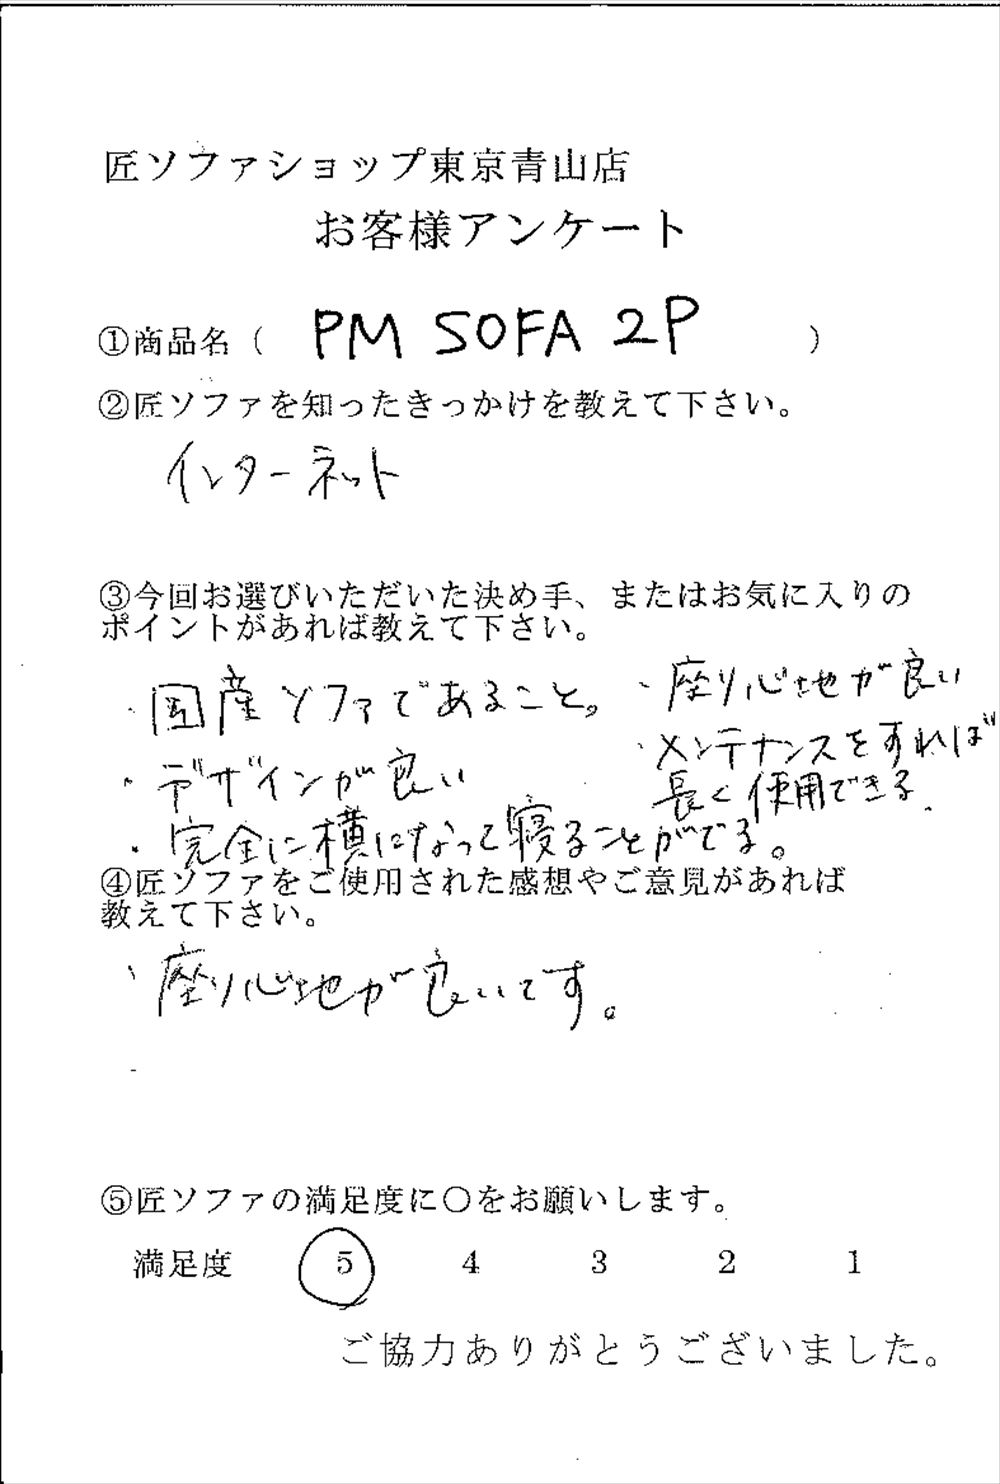 匠ソファショップ東京青山店
お客様アンケート
①商品名（ PM SOFA 2P ）
②匠ソファを知ったきっかけを教えて下さい。
インターネット
③今回お選びいただいた決め手、またはお気に入りの
ポイントがあれば教えて下さい。
・国産ソファであること。
・デザインが良い
・完全に横になって寝ることがでる。
・座り心地が良い
・メンテナンスをすれば
長く使用できる.
④匠ソファをご使用された感想やご意見があれば
教えて下さい。
・座り心地が良いです。
⑤匠ソファの満足度に〇をお願いします。
満足度 5 4 3 2 1
ご協力ありがとうございました。